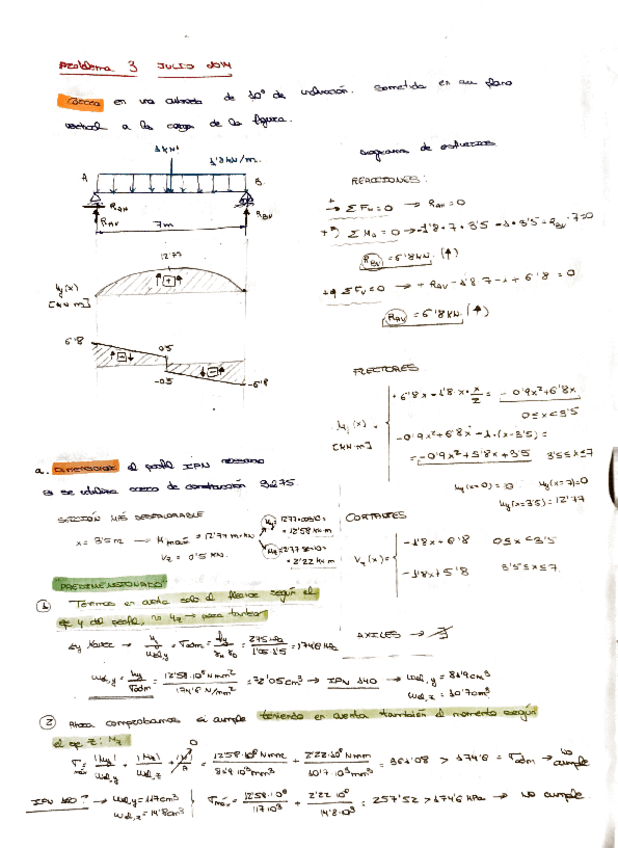 Problema 3 JULIO 2014
Correa en una cubierta de 10° de inclinación. Sometida en su plano
vertical a la carga de la figura.
Diagrama de esfuerzos
1 kN
1'8 kN/m.
A B.
R_AH
R_AV
R_BV
7m
REACCIONES:
ΣF_H = 0 → R_AH = 0
ΣM_A = 0 → -1'8 · 7 · 3'5 - 1 · 3'5 + R_BV · 7 = 0
R_BV = 6'8 kN. (↑)
ΣF_V = 0 → + R_AV - 1'8 · 7 - 1 + 6'8 = 0
R_AV = 6'8 kN. (↑)
12'77
My(x)
[kN·m]
6'8
0.5
-0.5
-6'8
FLECTORES
My(x) =
[kN·m]
· 6'8x - 1'8 · x · x/2 = - 0'9x² + 6'8x
0 ≤ x < 3'5
-0'9x² + 6'8x - 1 · (x - 3'5) =
= -0'9x² + 5'8x + 3'5 3'5 ≤ x ≤ 7
My(x=0) = 0 My(x=7) = 0
My(x=3'5) = 12'77
a. Dimensionar el perfil IPN necesario
si se utiliza acero de construcción S275
SECCIÓN MÁS DESFAVORABLE
x = 3'5 m → M máx = 12'77 m·kN
V_z = 0'5 kN.
My = 12'77 · cos10 =
= 12'58 kN·m
Mz = 12'77 · sen10 =
= 2'22 kN·m
CORTANTES
V_z(x) =
-1'8x + 6'8 0 ≤ x < 3'5
-1'8x + 5'8 3'5 ≤ x ≤ 7
AXILES →
"PREDIMENSIONADO"
① Tenemos en cuenta solo el flector según el
eje y del perfil, no Mz → para tantear
My / Wel,y = σadm = fy / = 275 MPa / 1'05 · 1'5 = 174'6 MPa
Wel,y = My / σadm = 12'58 · 10⁶ N mm² / 174'6 N/mm² = 72'05 cm³ → IPN 140 → Wel,y = 81'9 cm³
Wel,z = 10'70 cm³
② Ahora comprobamos si cumple teniendo en cuenta también el momento según
el eje z: Mz
σmáx = |My| / Wel,y + |Mz| / Wel,z + |N| / A = 12'58 · 10⁶ N mm / 81'9 · 10³ mm³ + 2'22 · 10⁶ N mm / 10'7 · 10³ mm³ = 361'08 > 174'6 = σadm → no cumple
IPN 160? → Wel,y = 117 cm³
Wel,z = 14'8 cm³
σmáx = 12'58 · 10⁶ / 117 · 10³ + 2'22 · 10⁶ / 14'8 · 10³ = 257'52 > 174'6 MPa → no cumple